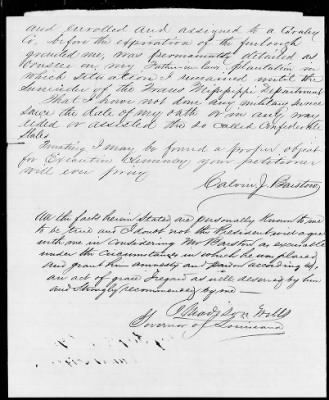 and enrolled and assigned to a Cavalry
Co. before the expiration of the furlough
granted me, was permanently detailed as
Overseer on my Father-in-laws plantation in
which situation I remained until the
surrender of the Trans Mississippi Department
That I have not done any military service
since the date of my oath or in any way
aided or assisted the so called Confederate
States.
Trusting I may be found a proper object
for Executive Clemency your petitioner
will ever pray
Calvin J. Barstow
All the facts herein stated are personally known to me
to be true and I doubt not the President will agree
with me in considering Mr Barstow as excusable
under the circumstances in which he was placed
and grant him amnesty and pardon accordingly.
an act of grace I regard as well deserved by him
and strongly recommended by me —
J Madison Wells
Governor of Louisiana